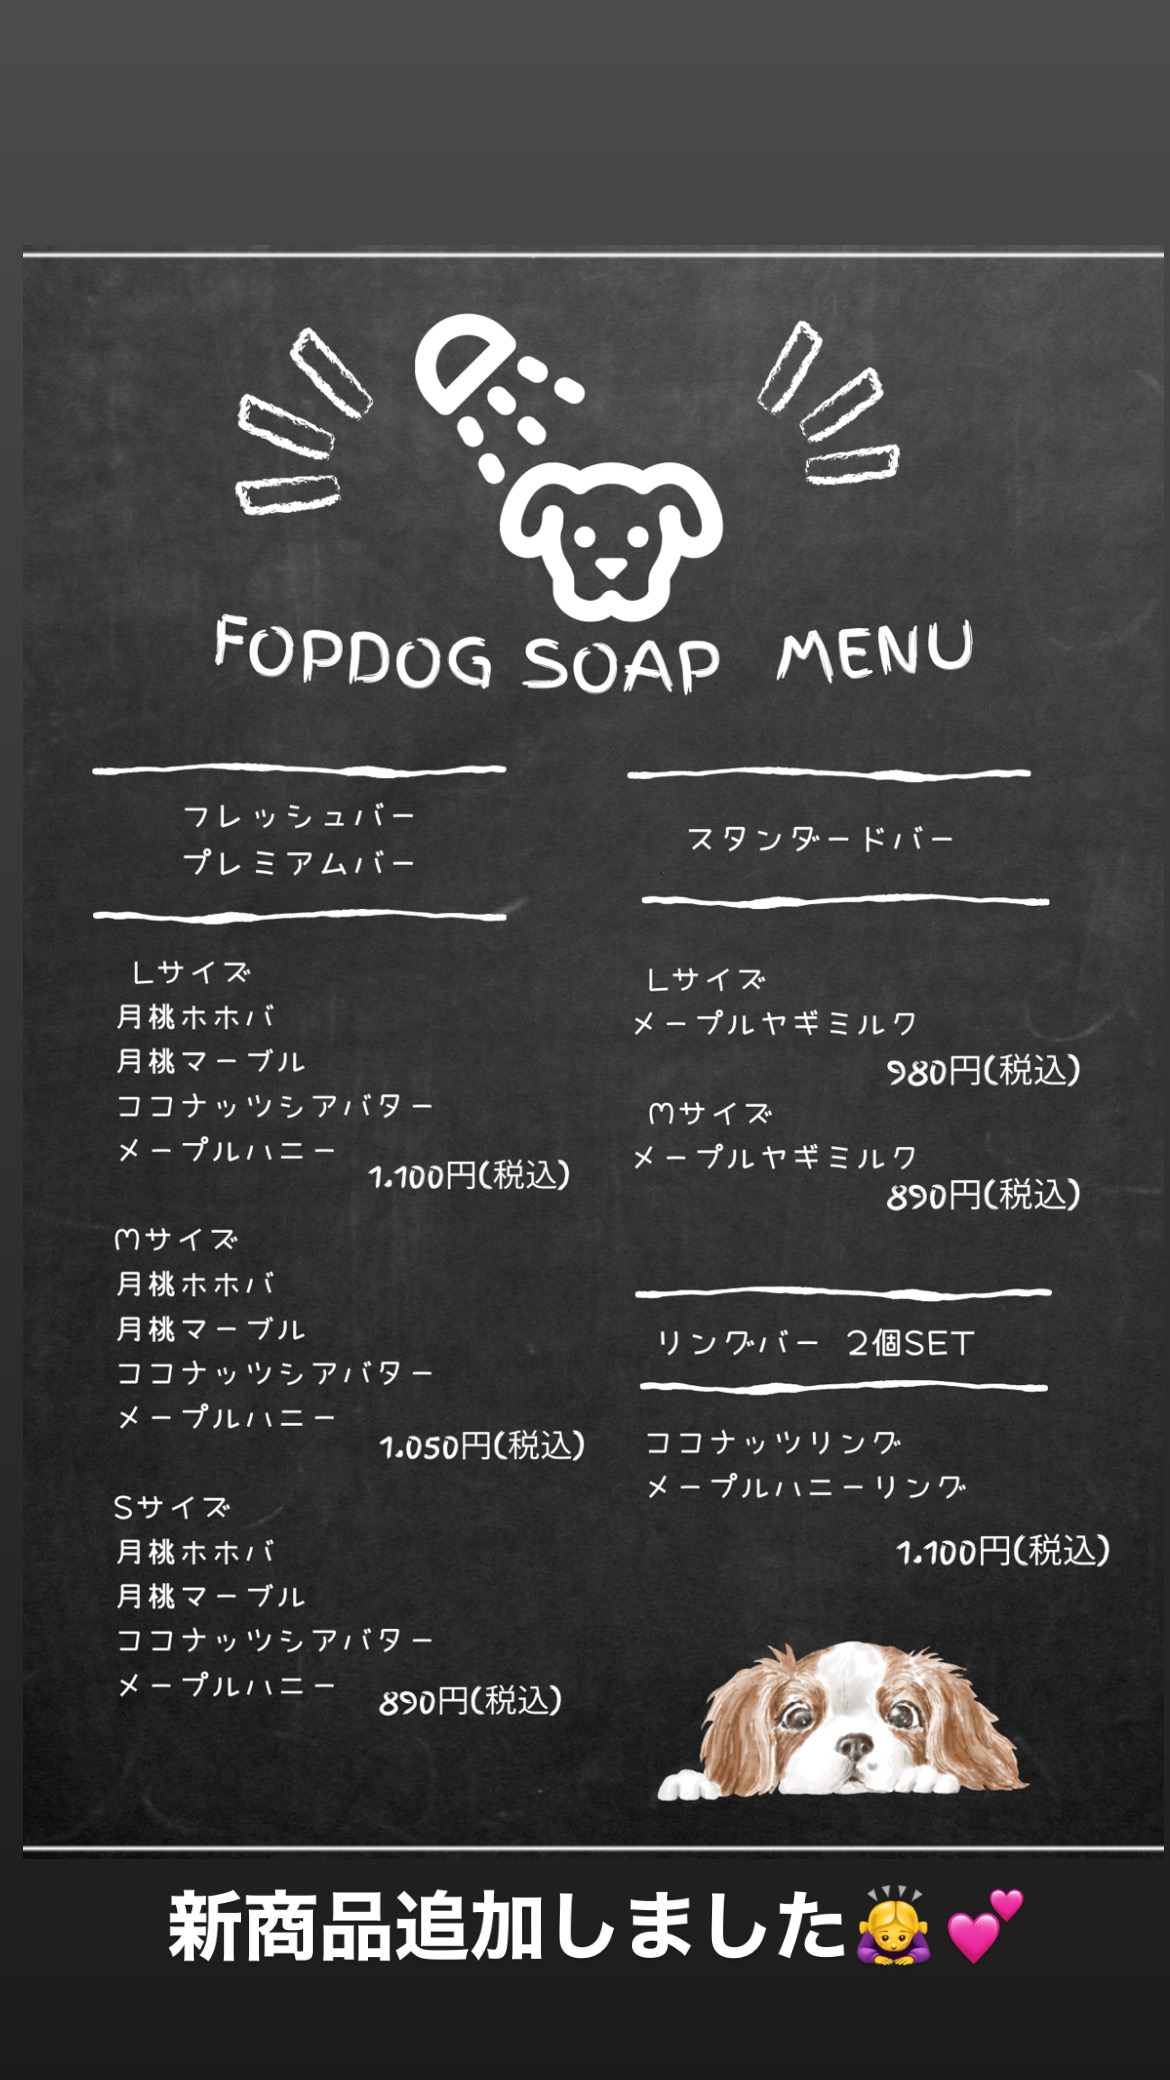 FOPDOG SOAP MENU
フレッシュバー
プレミアムバー
Lサイズ
月桃ホホバ
月桃マーブル
ココナッツシアバター
メープルハニー
1.100円(税込)
Mサイズ
月桃ホホバ
月桃マーブル
ココナッツシアバター
メープルハニー
1.050円(税込)
Sサイズ
月桃ホホバ
月桃マーブル
ココナッツシアバター
メープルハニー
890円(税込)
スタンダードバー
Lサイズ
メープルヤギミルク
980円(税込)
Mサイズ
メープルヤギミルク
890円(税込)
リングバー 2個SET
ココナッツリング
メープルハニーリング
1.100円(税込)
新商品追加しました🙇‍♀️💕